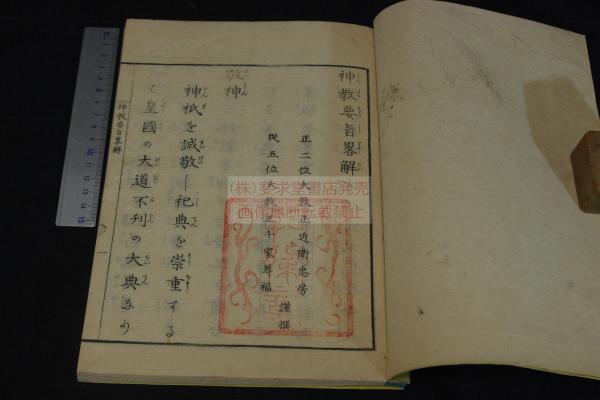 神教要旨畧解
正二位大教正近衛忠房
從五位大教正千家尊福
謹撰
敬神
神祇を誠敬し祀典を崇重する
ハ皇國の大道不刊の大典なり
神教要旨畧解
(株)斐求堂書店発売
画像無断転載禁止
10 11 12 13 14 15